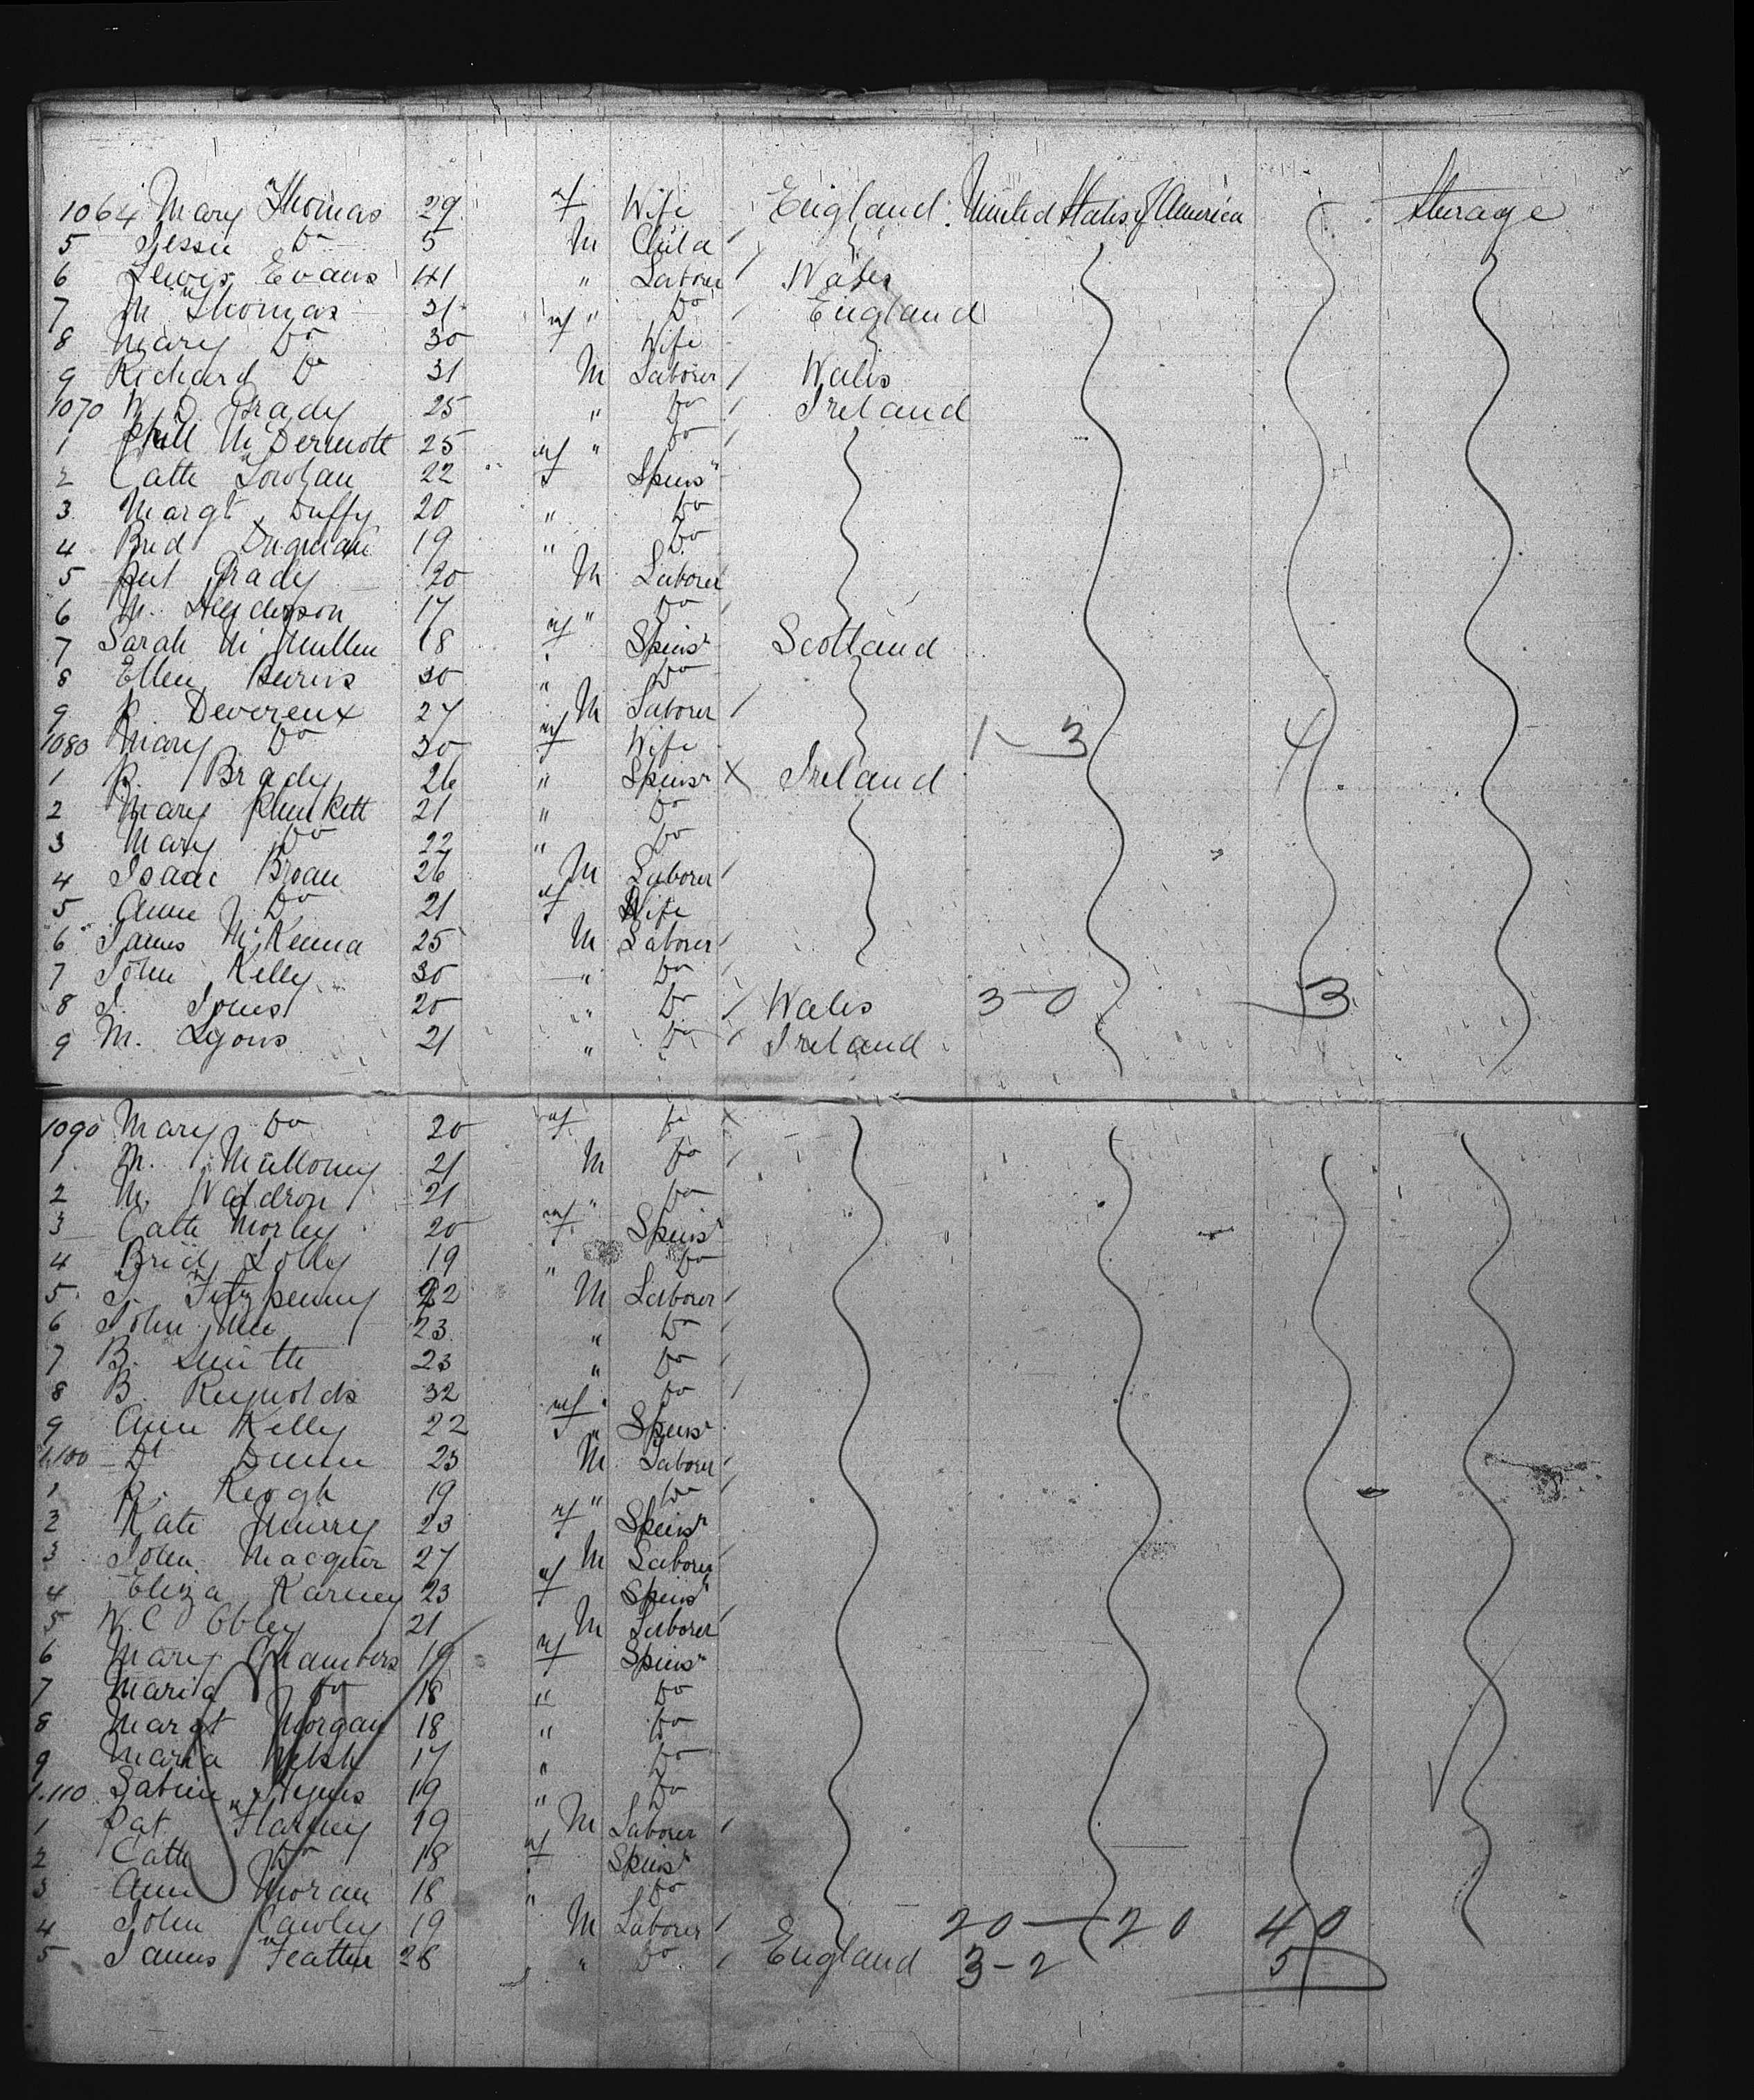 1064 Mary Thomas 29 f Wife England United States of America Sterage
5 Jessie Do 5 M Child
6 Lewis Evans 41 " Laborer Wales
7 M Thomas 31 " Do England
8 Mary Do 30 f Wife
9 Richard Do 31 M Laborer Wales
1070 W. D. Grady 25 " Do Ireland
1 McDermott 25 " Do
2 Cath 22 f Spinsr
3 Margt Duffy 20 " Do
4 Brid Dignan 19 " Do
5 Grady 20 M Laborer
6 M. Henderson 17 " Do
7 Sarah McMullen 18 f Spinsr Scotland
8 Ellen Burns 30 " Do
9 P. Devereux 27 M Laborer
1080 Mary Do 30 f Wife 1-3 4
1 P. Brady 26 " Spinsr X Ireland
2 Mary Plunkett 21 " Do
3 Mary Do 22 " Do
4 Isaac Broan 26 M Laborer
5 Anne Do 21 f Wife
6 James McKenna 25 M Laborer
7 John Kelly 30 " Do
8 J. Jones 20 " Do Wales 3-0 3
9 M. Lyons 21 " Do Ireland
1090 Mary Do 20 f Do
1 M. Mulloney 21 M Do
2 M. Waldron 21 " Do
3 Cath Morley 20 f Spinsr
4 Brid 19 " Do
5 J. Fitzpenny 22 M Laborer
6 John 23 " Do
7 B. Smith 23 " Do
8 B. Reynolds 32 " Do
9 Ann Kelly 22 f Spinsr
1100 Dl Dunn 23 M Laborer
1 P. Keogh 19 " Do
2 Kate 23 f Spinsr
3 John Macguir 27 M Laborer
4 Eliza Karney 23 f Spinsr
5 W. C. Obley 21 M Laborer
6 Mary Chambers 19 f Spinsr
7 Maria Do 18 " Do
8 Margt Morgan 18 " Do
9 Maria Welsh 17 " Do
1.110 Sabina Hynes 19 " Do
1 Pat Harney 19 M Laborer
2 Cath Do 18 f Spinsr
3 Ann Moran 18 " Do
4 John Cawley 19 M Laborer 20-20 40
5 James Feather 28 " Do England 3-2 5